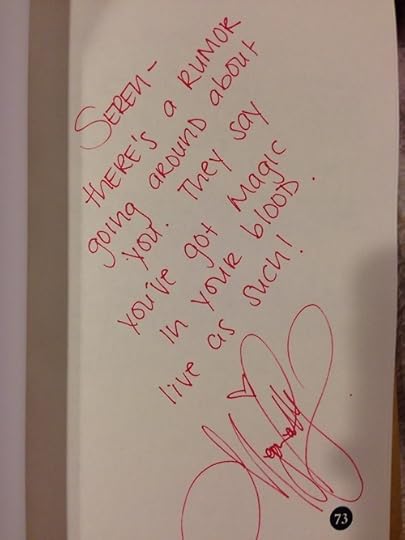 SEREN -
tHERE'S a RUMOR
going aROUND about
you. They say
you've got Magic
in your blood.
live as such!
73